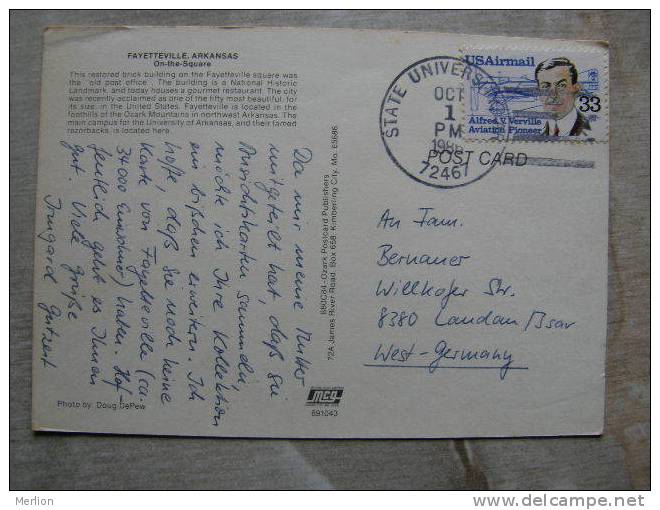 FAYETTEVILLE, ARKANSAS
On-the-Square
This restored brick building on the Fayetteville square was
the "old post office". The building is a National Historic
Landmark, and today houses a gourmet restaurant. The city
was recently acclaimed as one of the fifty most beautiful, for
its size, in the United States. Fayetteville is located in the
foothills of the Ozark Mountains in northwest Arkansas. The
main campus for the University of Arkansas, and their famed
razorbacks, is located here.
Da mir meine Mutter
mitgeteilt hat, daß Sie
Ansichtskarten sammeln,
möchte ich Ihre Kollektion
ein bißchen erweitern. Ich
hoffe, daß Sie noch keine
Karte von Fayetteville (ca.
34 000 Einwohner) haben. Hof-
fentlich geht es Ihnen
gut. Viele Grüße
Irmgard
Photo by: Doug DePew
Ozark Postcard Publishers
72A James River Road, Box 658, Kimberling City, Mo. 65686
mcg
691043
STATE UNIVERS
OCT
1
PM
198
72467
USAirmail
33
Alfred V. Verville
Aviation Pioneer
POST CARD
An Fam.
Bernauer
Willhofer Str.
8380 Landau/Isar
West-Germany
Merlion
www.delcampe.net